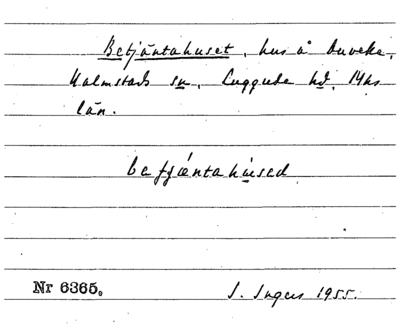 Betjäntahuset, hus å Duveke,
Halmstads sn, Luggude hd, Mhs
län.
be tjäntahused
Nr 6365.
I. Ingers 1955.